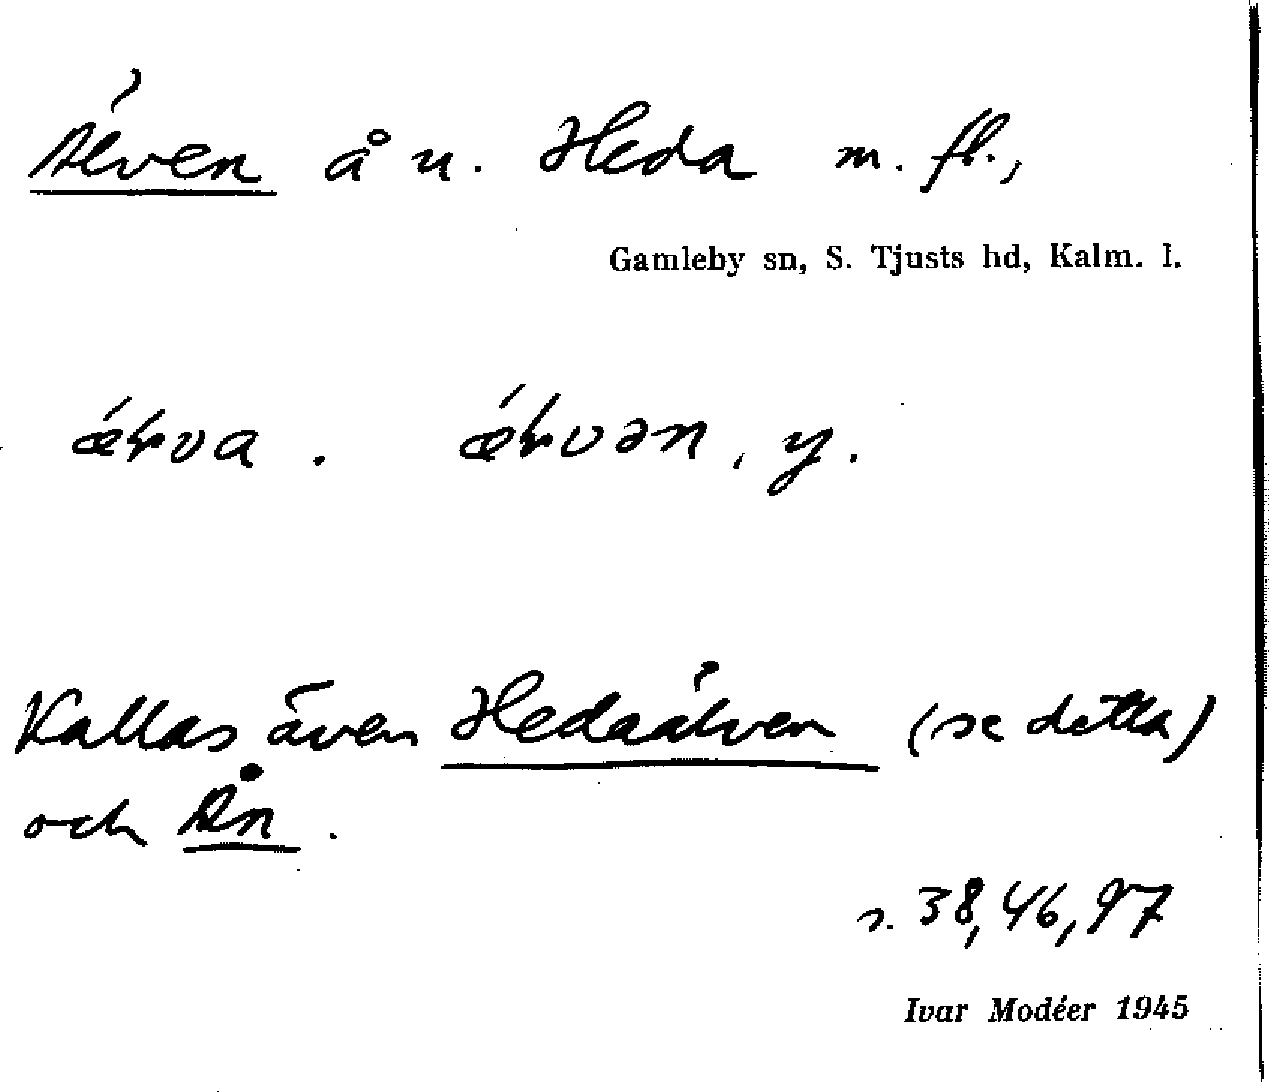 Älven å u. Heda m. fl.,
Gamleby sn, S. Tjusts hd, Kalm. l.
Kallas även Hedaälven (se detta)
och Ån.
s. 38, 46, 97
Ivar Modéer 1945